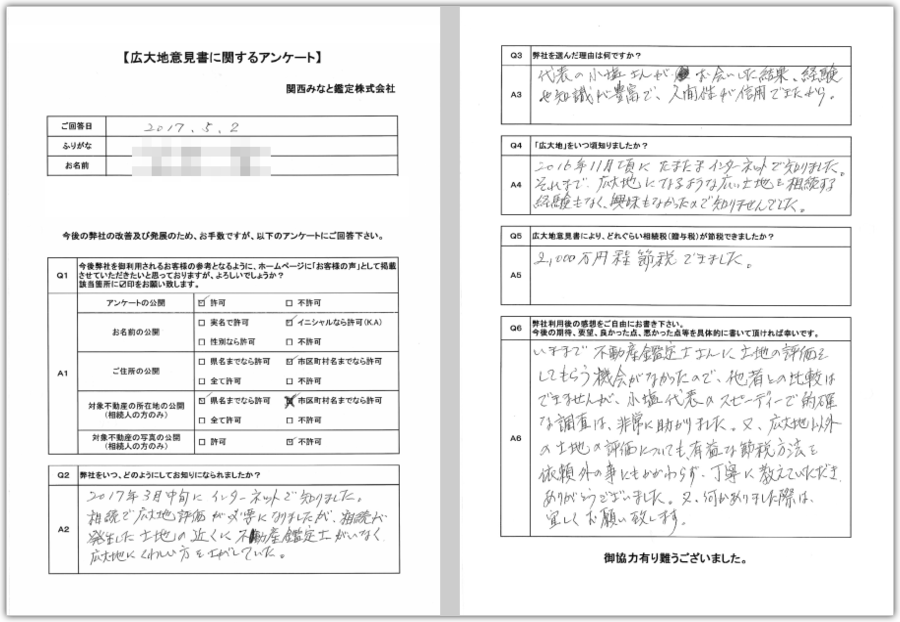 【広大地意見書に関するアンケート】
関西みなと鑑定株式会社
ご回答日 2017.5.2
ふりがな
お名前
今後の弊社の改善及び発展のため、お手数ですが、以下のアンケートにご回答下さい。
Q1 今後弊社を御利用されるお客様の参考となるように、ホームページに「お客様の声」として掲載
させていただきたいと思っておりますが、よろしいでしょうか?
該当箇所に☑印をお願い致します。
A1
アンケートの公開 ☑ 許可 □ 不許可
お名前の公開 □ 実名で許可 ☑ イニシャルなら許可(K.A)
□ 性別なら許可 □ 不許可
ご住所の公開 □ 県名までなら許可 ☑ 市区町村名までなら許可
□ 全て許可 □ 不許可
対象不動産の所在地の公開
(相続人の方のみ)
☑ 県名までなら許可 市区町村名までなら許可
□ 全て許可 □ 不許可
対象不動産の写真の公開
(相続人の方のみ)
□ 許可 ☑ 不許可
Q2 弊社をいつ、どのようにしてお知りになられましたか?
A2
2017年3月中旬にインターネットで知りました。
相続で広大地評価が必要になりましたが、相続が
発生した土地の近くに不動産鑑定士がいなく
広大地にくわしい方をさがしていた。
Q3 弊社を選んだ理由は何ですか?
A3
代表の小塩さんが お会いした結果、経験
や知識が豊富で、人間性が信用できたから。
Q4 「広大地」をいつ頃知りましたか?
A4
2016年11月頃に たまたまインターネットで知りました。
それまで、広大地になるような広い土地を相続する
経験もなく、興味もなかったので知りませんでした。
Q5 広大地意見書により、どれぐらい相続税(贈与税)が節税できましたか?
A5
2,000万円程節税できました。
Q6 弊社利用後の感想をご自由にお書き下さい。
今後の期待、要望、良かった点、悪かった点等を具体的に書いて頂ければ幸いです。
A6
いままで不動産鑑定士さんに土地の評価を
してもらう機会がなかったので、他者との比較は
できませんが、小塩代表のスピーディーで的確
な調査は、非常に助かりました。又、広大地以外
の土地の評価についても、有益な節税方法を
依頼外の事にもかかわらず、丁寧に教えていただき
ありがとうございました。又、何かありました際は、
宜しくお願い致します。
御協力有り難うございました。